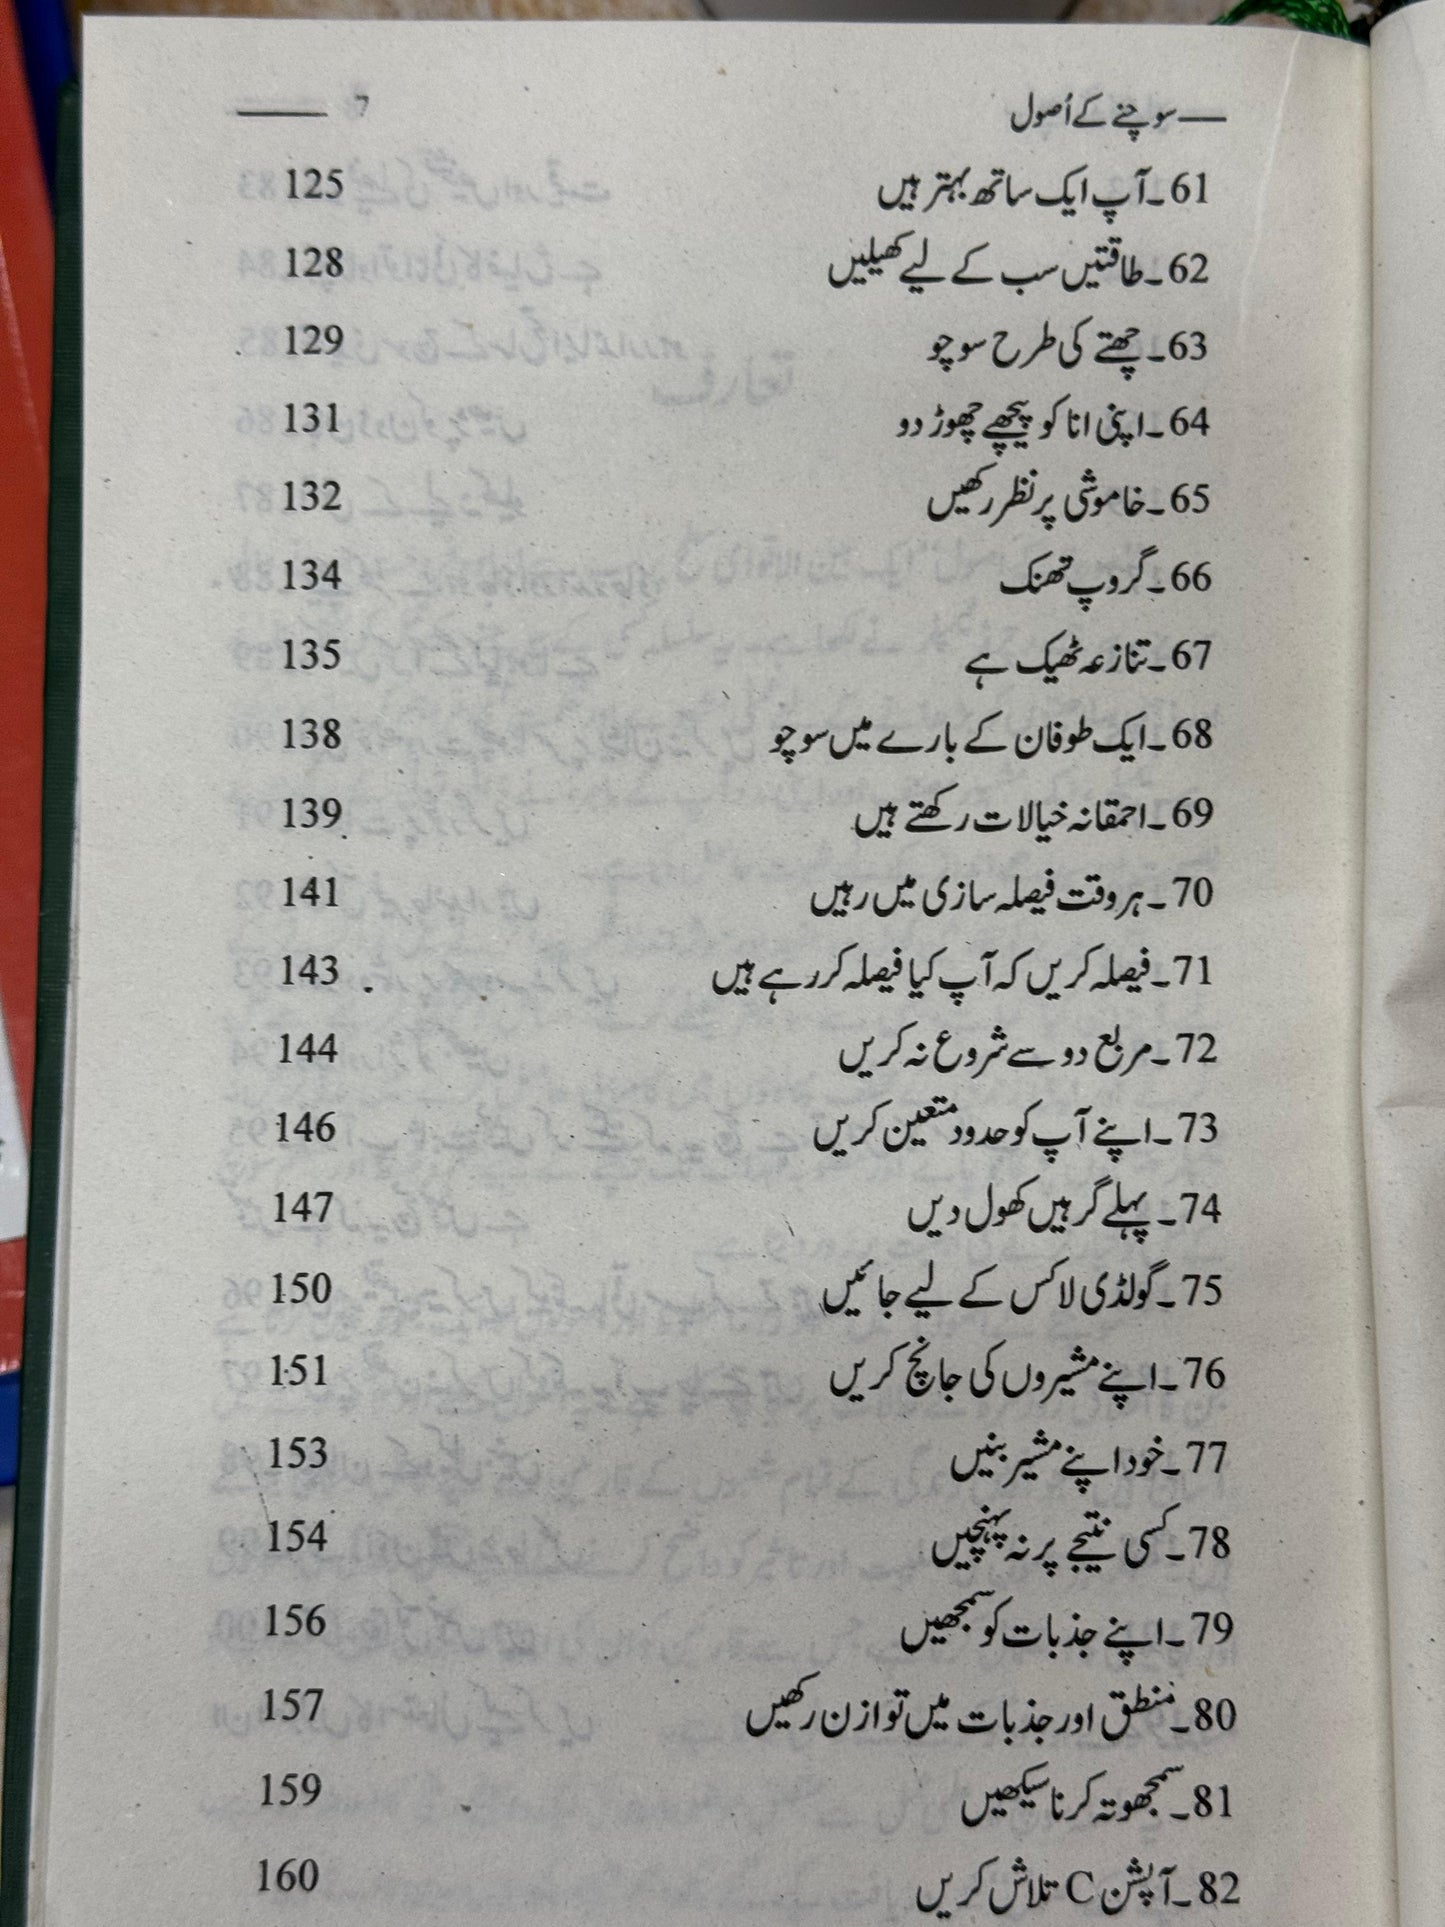 سوچنے کے اُصول 7
61۔آپ ایک ساتھ بہتر ہیں 125
62۔طاقتیں سب کے لیے کھیلیں 128
63۔چھتے کی طرح سوچو 129
64۔اپنی انا کو پیچھے چھوڑ دو 131
65۔خاموشی پر نظر رکھیں 132
66۔گروپ تھنک 134
67۔تنازعہ ٹھیک ہے 135
68۔ایک طوفان کے بارے میں سوچو 138
69۔احمقانہ خیالات رکھتے ہیں 139
70۔ہر وقت فیصلہ سازی میں رہیں 141
71۔فیصلہ کریں کہ آپ کیا فیصلہ کر رہے ہیں 143
72۔مربع دو سے شروع نہ کریں 144
73۔اپنے آپ کو حدود متعین کریں 146
74۔پہلے گرہیں کھول دیں 147
75۔گولڈی لاکس کے لیے جائیں 150
76۔اپنے مشیروں کی جانچ کریں 151
77۔خود اپنے مشیر بنیں 153
78۔کسی نتیجے پر نہ پہنچیں 154
79۔اپنے جذبات کو سمجھیں 156
80۔منطق اور جذبات میں توازن رکھیں 157
81۔سمجھوتہ کرنا سیکھیں 159
82۔آپشن C تلاش کریں 160